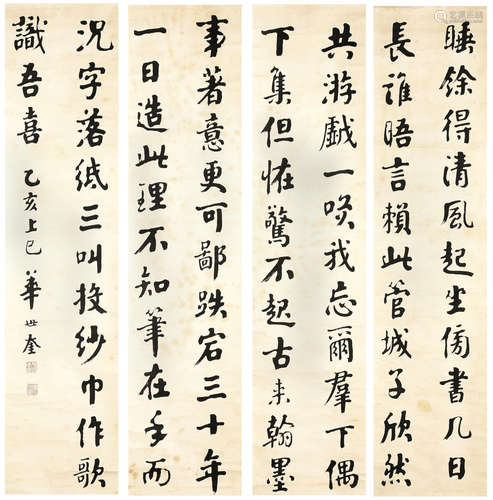 睡餘得清風起坐傍書几日
長誰晤言賴此管城子欣然
共游戲一笑我忘爾羣下偶
下集但怪驚不起古來翰墨
事著意更可鄙跌宕三十年
一日造此理不知筆在手而
况字落紙三叫投紗巾作歌
識吾喜 乙亥上巳 華世奎